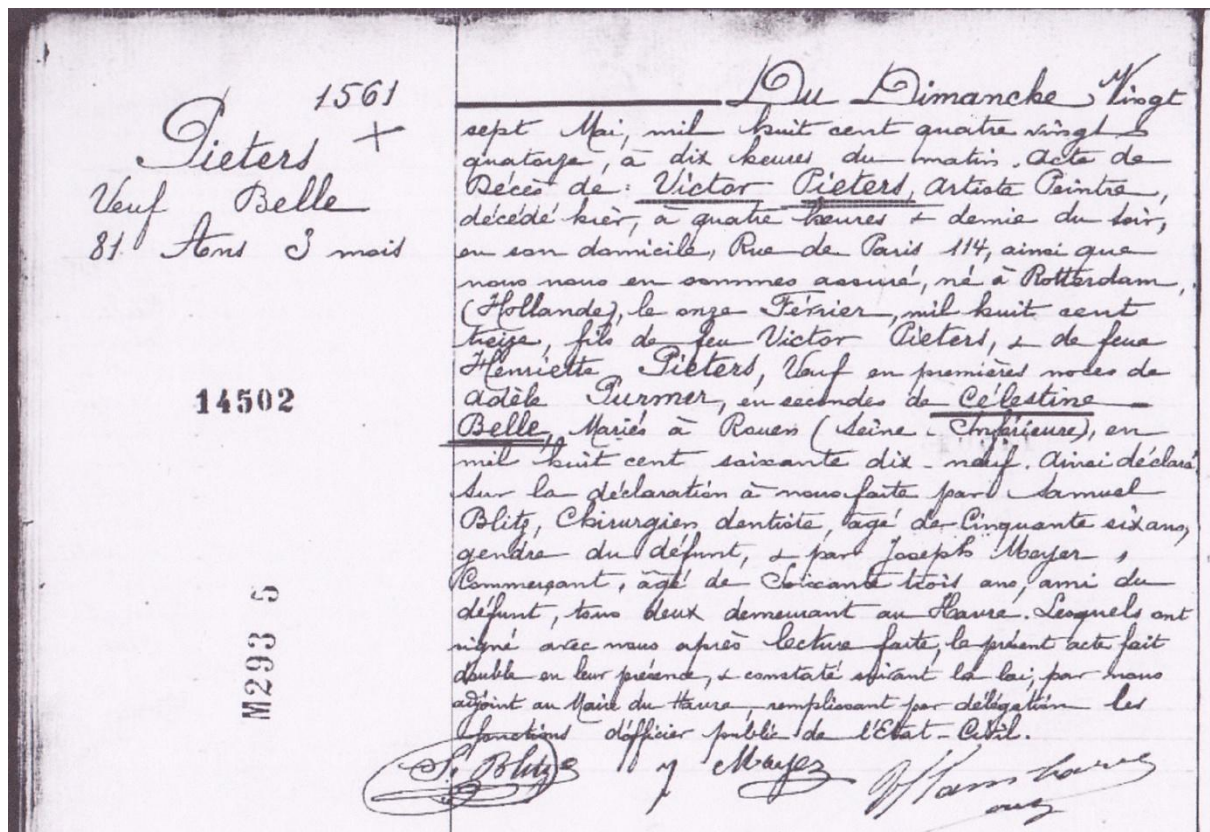 1561
Pieters
Veuf Belle
81 Ans 3 mois
14502
M293 5
Du Dimanche Vingt
sept Mai, mil huit cent quatre vingt
quatorze, à dix heures du matin. Acte de
Décès de : Victor Pieters, Artiste Peintre,
décédé hier, à quatre heures & demie du soir,
en son domicile, Rue de Paris 114, ainsi que
nous nous en sommes assuré, né à Rotterdam,
(Hollande), le onze Février, mil huit cent
treize, fils de feu Victor Pieters, & de feue
Henriette Pieters, Veuf en premières noces de
Adèle Purmer, en secondes de Célestine
Belle, Mariés à Rouen (Seine-Inférieure), en
mil huit cent soixante dix-neuf. Ainsi déclaré
Sur la déclaration à nous faite par Samuel
Blitz, Chirurgien dentiste, âgé de Cinquante six ans,
gendre du défunt, & par Joseph Mayer,
Commerçant, âgé de Soixante trois ans, ami du
défunt, tous deux demeurant au Havre. Lesquels ont
signé avec nous après lecture faite, le présent acte fait
double en leur présence, & constaté suivant la loi, par nous
adjoint au Maire du Havre, remplissant par délégation les
fonctions d'officier public de l'Etat-Civil.
S. Blitz J Mayer